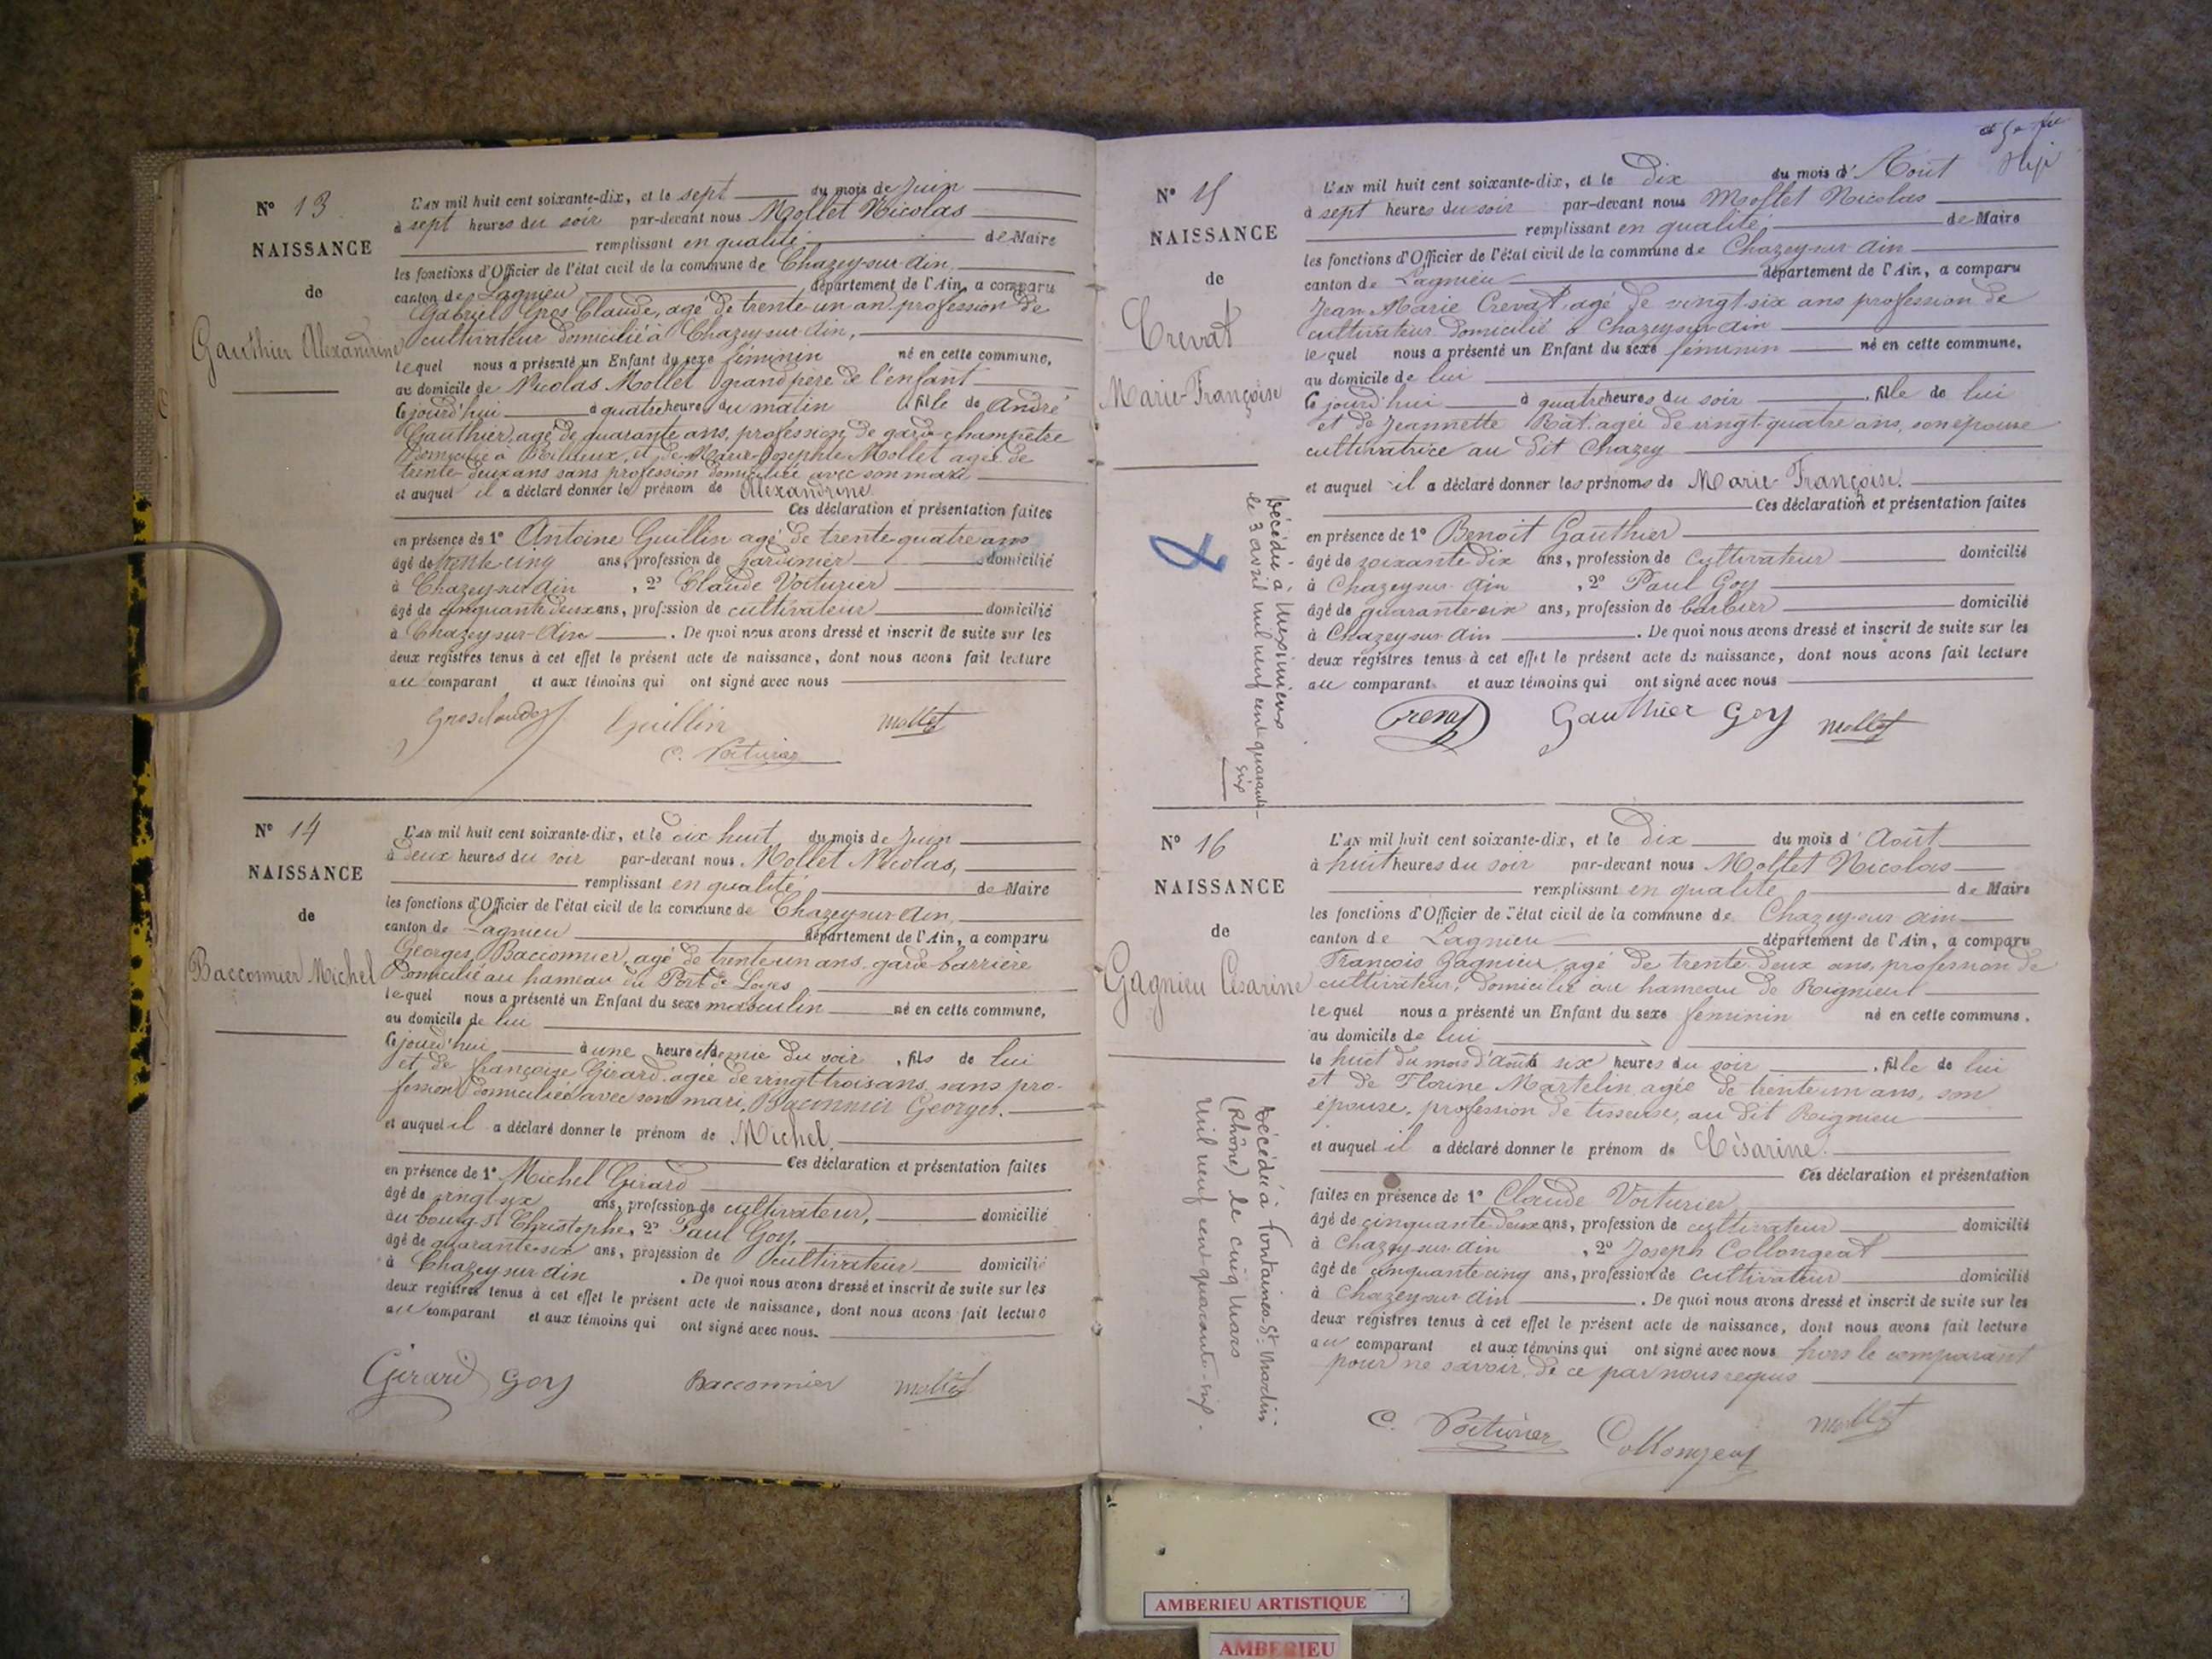 N° 13
NAISSANCE
de
Gauthier Alexandrine
L'AN mil huit cent soixante-dix, et le sept du mois de Juin
à sept heures du soir par-devant nous Mollet Nicolas
remplissant en qualité de Maire
les fonctions d'Officier de l'état civil de la commune de Chazey-sur-Ain
canton de Lagnieu département de l'Ain, a comparu
Gabriel Gros Claude, agé de trente-un an profession de
cultivateur domicilié à Chazey-sur-Ain,
lequel nous a présenté un Enfant du sexe féminin né en cette commune,
au domicile de Nicolas Mollet grand père de l'enfant
Cejourd'hui à quatre heures du matin fille de André
Gauthier, agé de quarante ans, profession de garde-champêtre
domicilié à Rillieux, et de Marie-Josephte Mollet agée de
trente-deux ans sans profession domiciliée avec son mari
et auquel il a déclaré donner le prénom de Alexandrine
Ces déclaration et présentation faites
en présence de 1° Antoine Guillin agé de trente quatre ans
âgé de trente cinq ans, profession de jardinier domicilié
à Chazey-sur-Ain, 2° Claude Voiturier
âgé de cinquante deux ans, profession de cultivateur domicilié
à Chazey-sur-Ain. De quoi nous avons dressé et inscrit de suite sur les
deux registres tenus à cet effet le présent acte de naissance, dont nous avons fait lecture
au comparant et aux témoins qui ont signé avec nous
Grosclaudes Guillin Mollet
C. Voiturier
N° 14
NAISSANCE
de
Bacconnier Michel
L'AN mil huit cent soixante-dix, et le dix huit du mois de Juin
à deux heures du soir par-devant nous Mollet Nicolas,
remplissant en qualité de Maire
les fonctions d'Officier de l'état civil de la commune de Chazey-sur-Ain
canton de Lagnieu département de l'Ain, a comparu
Georges Bacconnier, agé de trente un ans, garde-barrière
domicilié au hameau du Port de Loyes
lequel nous a présenté un Enfant du sexe masculin né en cette commune,
au domicile de lui
Cejourd'hui à une heure et demie du soir, fils de lui
et de Françoise Girard agée de vingt-trois ans, sans pro-
fession domiciliée avec son mari, Bacconnier Georges.
et auquel il a déclaré donner le prénom de Michel
Ces déclaration et présentation faites
en présence de 1° Michel Girard
âgé de vingt-six ans, profession de cultivateur, domicilié
au bourg St Christophe, 2° Paul Goy,
âgé de quarante-six ans, profession de cultivateur domicilié
à Chazey sur Ain. De quoi nous avons dressé et inscrit de suite sur les
deux registres tenus à cet effet le présent acte de naissance, dont nous avons fait lecture
au comparant et aux témoins qui ont signé avec nous.
Girard Goy Bacconnier Mollet
N° 15
NAISSANCE
de
Crevat
Marie-Françoise
Décédée à Meximieux
le 3 avril mil neuf cent quarante-
six
L'AN mil huit cent soixante-dix, et le dix du mois d'Août
à sept heures du soir par-devant nous Mollet Nicolas
remplissant en qualité de Maire
les fonctions d'Officier de l'état civil de la commune de Chazey-sur-Ain
canton de Lagnieu département de l'Ain, a comparu
Jean-Marie Crevat, agé de vingt-six ans profession de
cultivateur domicilié à Chazey-sur-Ain
lequel nous a présenté un Enfant du sexe féminin né en cette commune,
au domicile de lui
Cejourd'hui à quatre heures du soir, fille de lui
et de Jeannette Rat agée de vingt-quatre ans, son épouse
cultivatrice au dit Chazey
et auquel il a déclaré donner les prénoms de Marie-Françoise.
Ces déclaration et présentation faites
en présence de 1° Benoit Gauthier
âgé de soixante dix ans, profession de cultivateur domicilié
à Chazey-sur-Ain, 2° Paul Goy
âgé de quarante-six ans, profession de barbier domicilié
à Chazey sur Ain. De quoi nous avons dressé et inscrit de suite sur les
deux registres tenus à cet effet le présent acte de naissance, dont nous avons fait lecture
au comparant et aux témoins qui ont signé avec nous
Crevat Gauthier Goy Mollet
N° 16
NAISSANCE
de
Gagnieu Césarine
Décédée à Fontaines-St-Martin
(Rhône) le cinq mars
mil neuf cent quarante-six.
L'AN mil huit cent soixante-dix, et le dix du mois d'Août
à huit heures du soir par-devant nous Mollet Nicolas
remplissant en qualité de Maire
les fonctions d'Officier de l'état civil de la commune de Chazey-sur-Ain
canton de Lagnieu département de l'Ain, a comparu
François Gagnieu, agé de trente-deux ans, profession de
cultivateur, domicilié au hameau de Rignieu
lequel nous a présenté un Enfant du sexe féminin né en cette commune.
au domicile de lui
le huit du mois d'août à six heures du soir, fille de lui
et de Florine Martelin agée de trente un ans, son
épouse, profession de tisseuse, au dit Rignieu
et auquel il a déclaré donner le prénom de Césarine.
Ces déclaration et présentation
faites en présence de 1° Claude Voiturier
âgé de cinquante deux ans, profession de cultivateur domicilié
à Chazey-sur-Ain, 2° Joseph Collongeat
âgé de cinquante cinq ans, profession de cultivateur domicilié
à Chazey-sur-Ain. De quoi nous avons dressé et inscrit de suite sur les
deux registres tenus à cet effet le présent acte de naissance, dont nous avons fait lecture
au comparant et aux témoins qui ont signé avec nous hors le comparant
pour ne savoir, de ce par nous requis
C. Voiturier Collongeat Mollet
AMBERIEU ARTISTIQUE
AMBERIEU